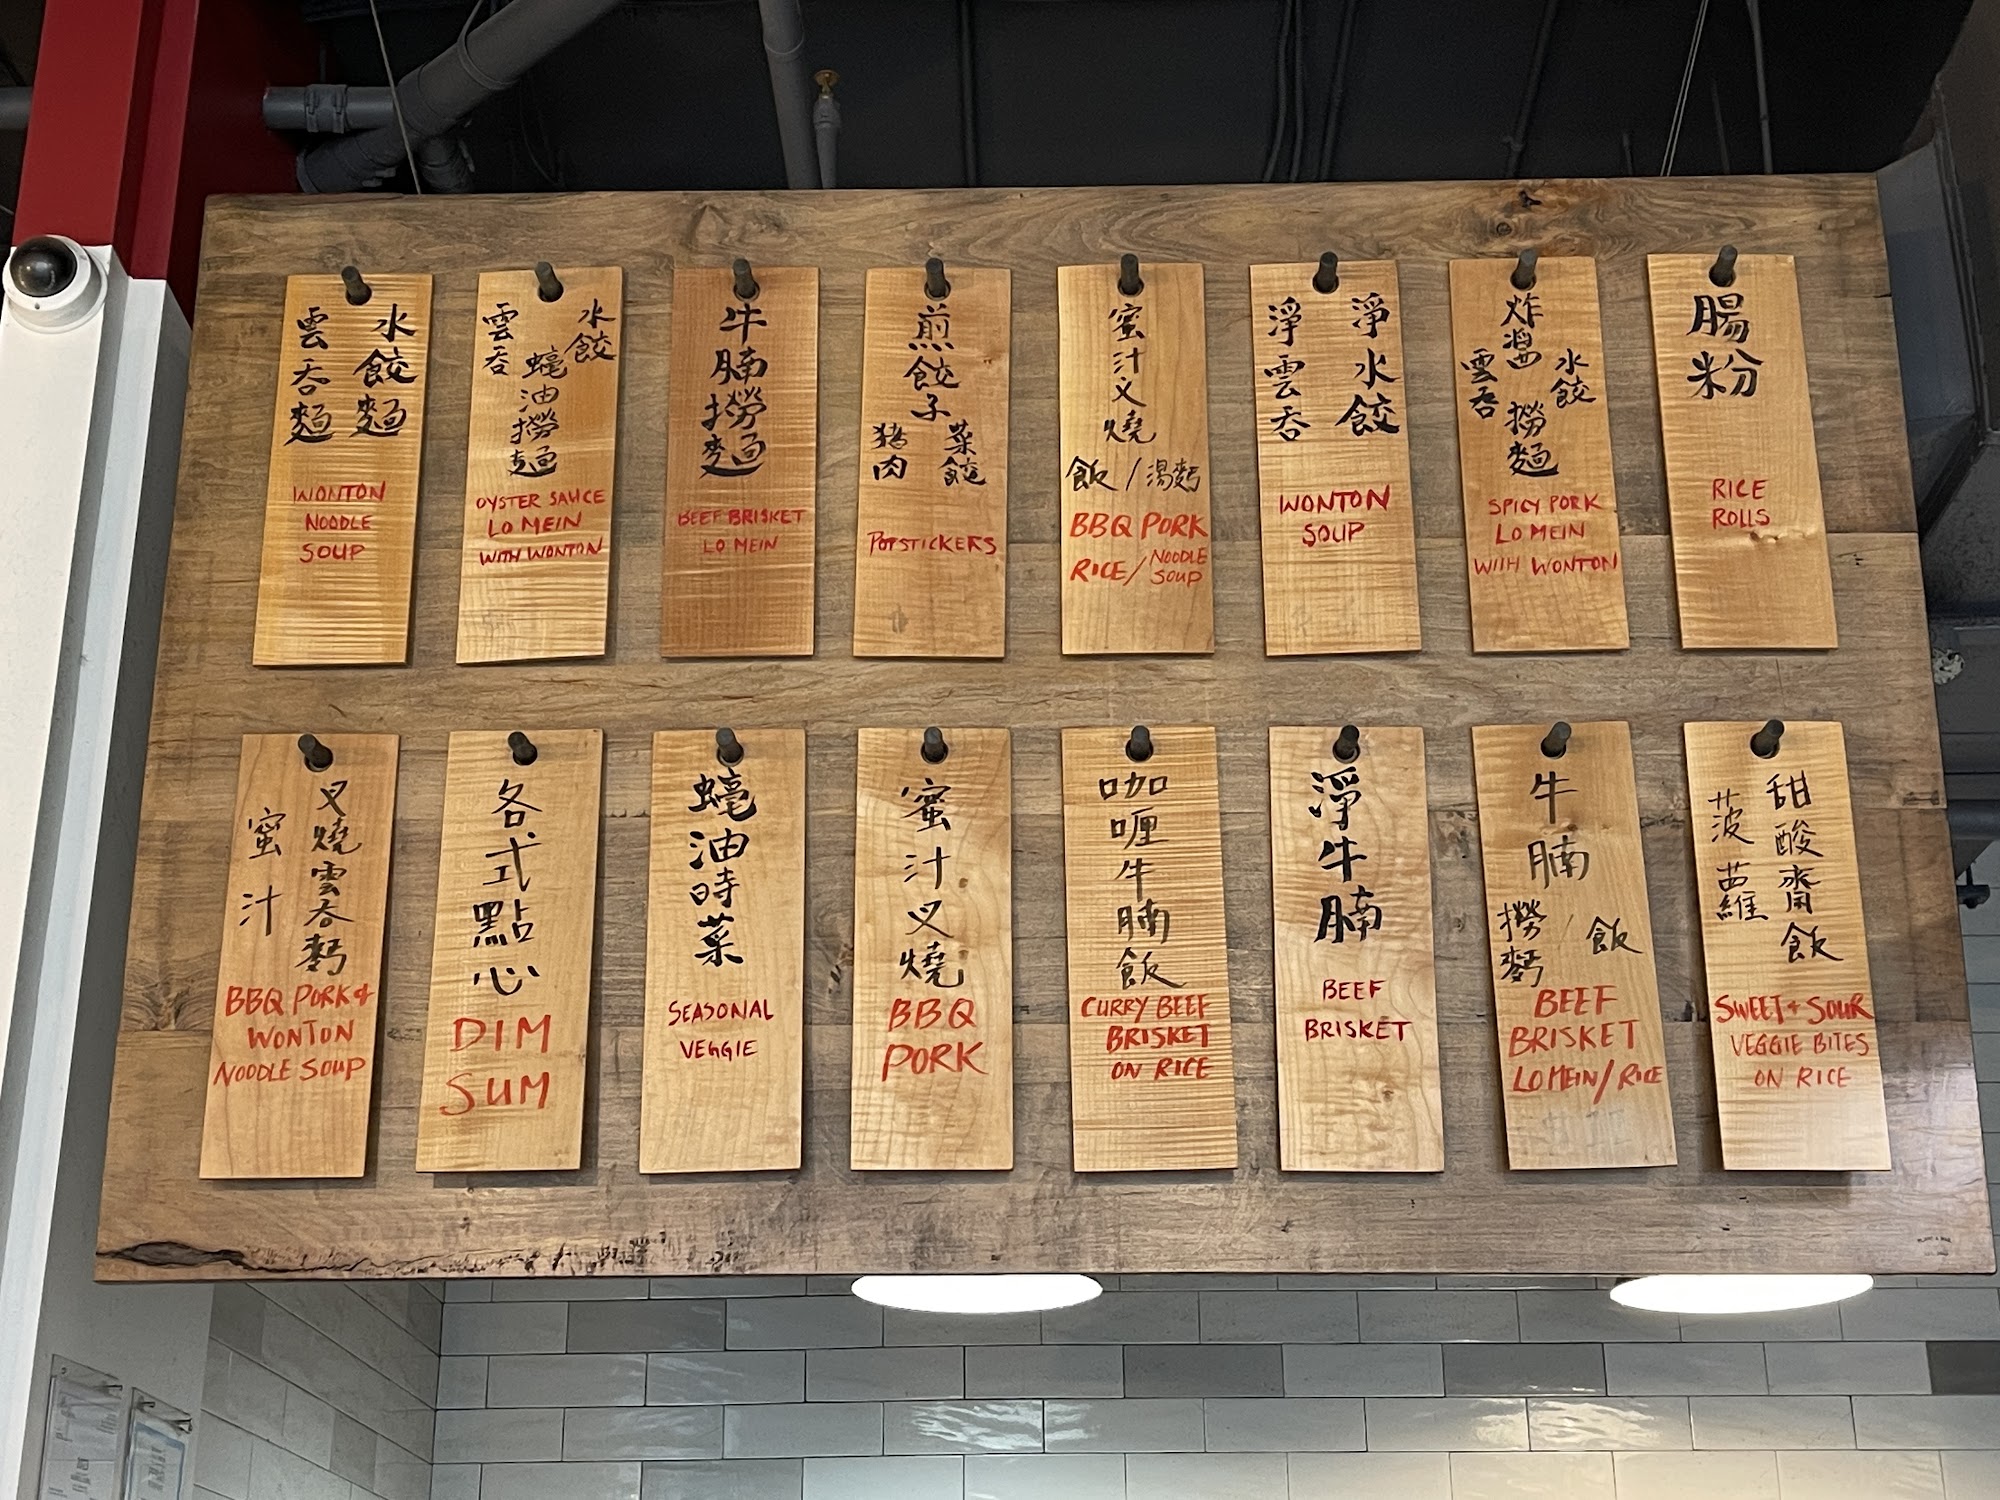 水餃麵
雲吞麵
WONTON
NOODLE
SOUP
水餃
雲吞
蠔油撈麵
OYSTER SAUCE
LO MEIN
WITH WONTON
牛腩撈麵
BEEF BRISKET
LO MEIN
煎餃子
菜餃
猪肉
POTSTICKERS
蜜汁叉燒
飯/湯麪
BBQ PORK
RICE/NOODLE
SOUP
淨水餃
淨雲吞
WONTON
SOUP
炸醬
水餃
雲吞
撈麵
SPICY PORK
LO MEIN
WITH WONTON
腸粉
RICE
ROLLS
蜜汁
叉燒雲吞麪
BBQ PORK &
WONTON
NOODLE SOUP
各式點心
DIM
SUM
蠔油時菜
SEASONAL
VEGGIE
蜜汁叉燒
BBQ
PORK
咖喱牛腩飯
CURRY BEEF
BRISKET
ON RICE
淨牛腩
BEEF
BRISKET
牛腩
撈麪/飯
BEEF
BRISKET
LO MEIN/RICE
甜酸齋飯
菠蘿
SWEET + SOUR
VEGGIE BITES
ON RICE